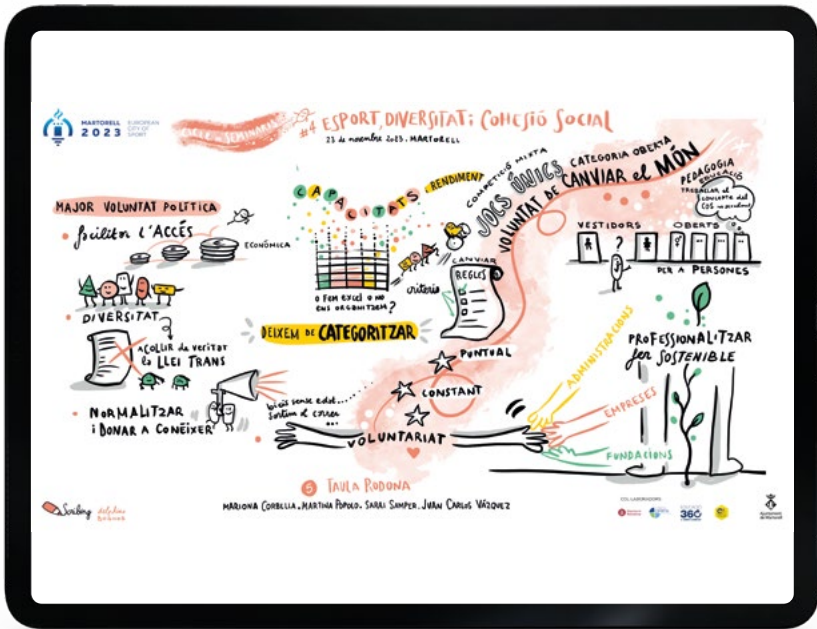 MARTORELL
2023
EUROPEAN
CITY OF
SPORT
CICLE de SEMINARIS
#4 ESPORT, DIVERSITAT i COHESIÓ SOCIAL
23 de novembre 2023. MARTORELL
MAJOR VOLUNTAT POLÍTICA
• facilitar l'ACCÉS
ECONÒMICA
DIVERSITAT
ACOLLIR de veritat
la LLEI TRANS
• NORMALITZAR
i DONAR A CONÈIXER
CAPACITATS i RENDIMENT
O FEM EXCEL O NO
ENS ORGANITZEM?
criteris
DEIXEM DE CATEGORITZAR
CANVIAR
REGLES
COMPETICIÓ MIXTA
JOCS ÚNICS
CATEGORIA OBERTA
VOLUNTAT DE CANVIAR el MÓN
PEDAGOGIA
EDUCACIÓ
TREBALLAR el
CONCEPTE del
COS
VESTIDORS OBERTS
?
PER A PERSONES
PUNTUAL
CONSTANT
VOLUNTARIAT
sense edat
Sortim al carrer
...
ADMINISTRACIONS
EMPRESES
FUNDACIONS
PROFESSIONALITZAR
fer SOSTENIBLE
5 TAULA RODONA
MARIONA CORBELLA. MARTINA POPOLO. SARAI SAMPER. JUAN CARLOS VÁZQUEZ
Scribing
delphine
boghos
COL·LABORADORS
360
Ajuntament
de Martorell